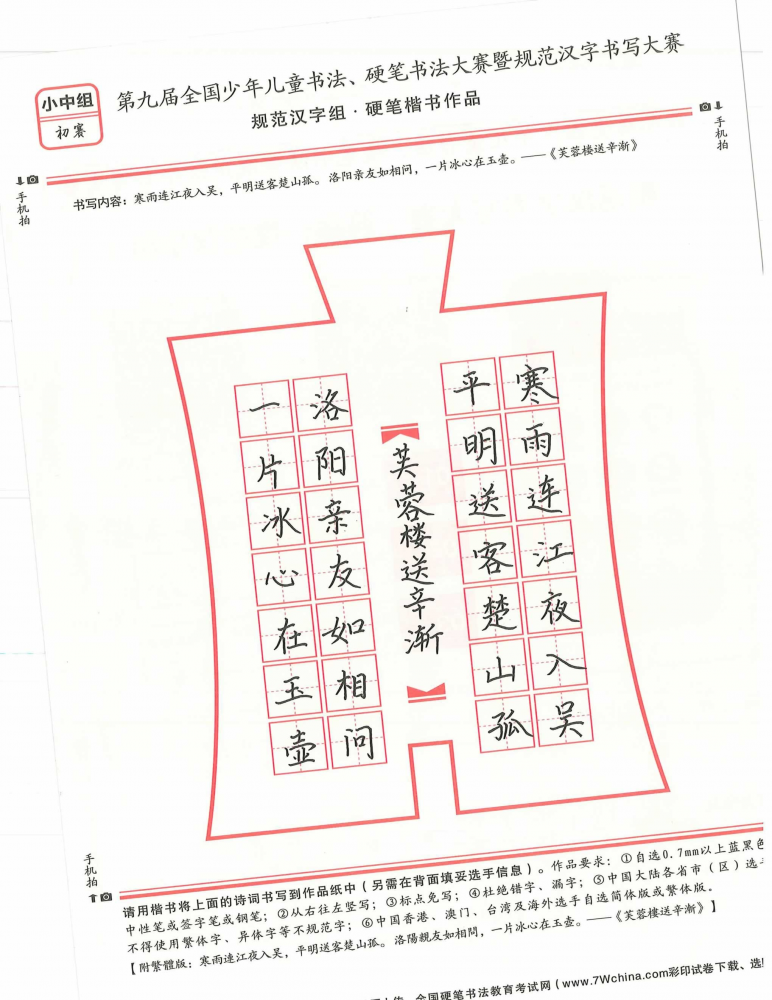 小中组
初赛
第九届全国少年儿童书法、硬笔书法大赛暨规范汉字书写大赛
规范汉字组·硬笔楷书作品
手机拍
手机拍
书写内容：寒雨连江夜入吴，平明送客楚山孤。洛阳亲友如相问，一片冰心在玉壶。——《芙蓉楼送辛渐》
寒雨连江夜入吴
平明送客楚山孤
芙蓉楼送辛渐
洛阳亲友如相问
一片冰心在玉壶
手机拍
请用楷书将上面的诗词书写到作品纸中（另需在背面填妥选手信息）。作品要求：①自选0.7mm以上蓝黑色
中性笔或签字笔或钢笔；②从右往左竖写；③标点免写；④杜绝错字、漏字；⑤中国大陆各省市（区）选手
不得使用繁体字、异体字等不规范字；⑥中国香港、澳门、台湾及海外选手自选简体版或繁体版。
【附繁體版：寒雨连江夜入吴，平明送客楚山孤。洛陽親友如相問，一片冰心在玉壶。——《芙蓉楼送辛渐》】
全国硬笔书法教育考试网（www.7Wchina.com彩印试卷下载、选